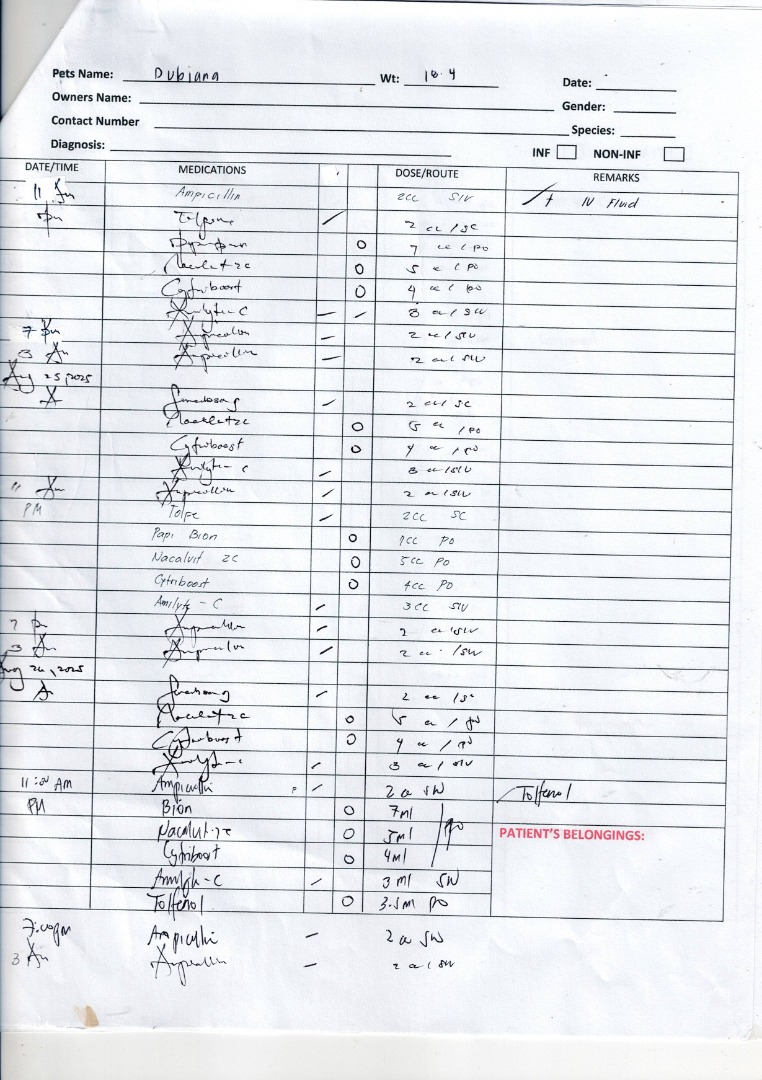 Pets Name: Dubiana Wt: 18.4 Date:
Owners Name: Gender:
Contact Number Species:
Diagnosis: INF NON-INF
DATE/TIME MEDICATIONS DOSE/ROUTE REMARKS
11 Am Ampicillin 2cc SIV + IV Fluid
pm 2 cc / SC
7 cc / po
5 cc / po
Cytriboost 4 cc / po
Amilyte-C 3 cc / SIV
7 pm Ampicillin 2 cc / SIV
3 Am Ampicillin 2 cc / SIV
Aug 25, 2025
A 2 cc / SC
5 cc / po
Cytriboost 4 cc / po
Amilyte-C 3 cc / SIV
11 Am Ampicillin 2 cc / SIV
PM Tolfe 2cc SC
Papi Bion 7cc PO
Nacalvit 2C 5cc PO
Cytriboost 4cc PO
Amilyte-C 3cc SIV
7 pm Ampicillin 2 cc / SIV
3 Am Ampicillin 2 cc / SIV
Aug 26, 2025
A 2 cc / SC
5 cc / po
Cytriboost 4 cc / po
Amilyte-C 3 cc / SIV
11:00 AM Ampicillin 2 cc SIV Tolfenol
PM Bion 7ml
Nacalvit-2c 5ml po
Cytriboost 4ml
PATIENT'S BELONGINGS:
Amilyte-C 3ml SIV
Tolfenol 3.5ml PO
7:00pm Ampicillin 2 cc SIV
3 Am Ampicillin 2 cc / SIV